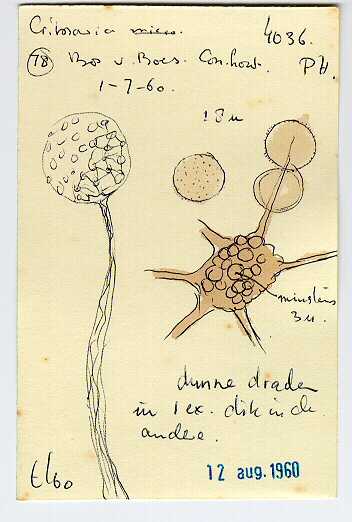 Cribraria micro. 4036.
78 Bos v. Bocs. PH.
1-7-60.
18 µ
minstens
3 µ.
dunne draden
in 1 ex. dik in de
andere.
El60
12 aug. 1960